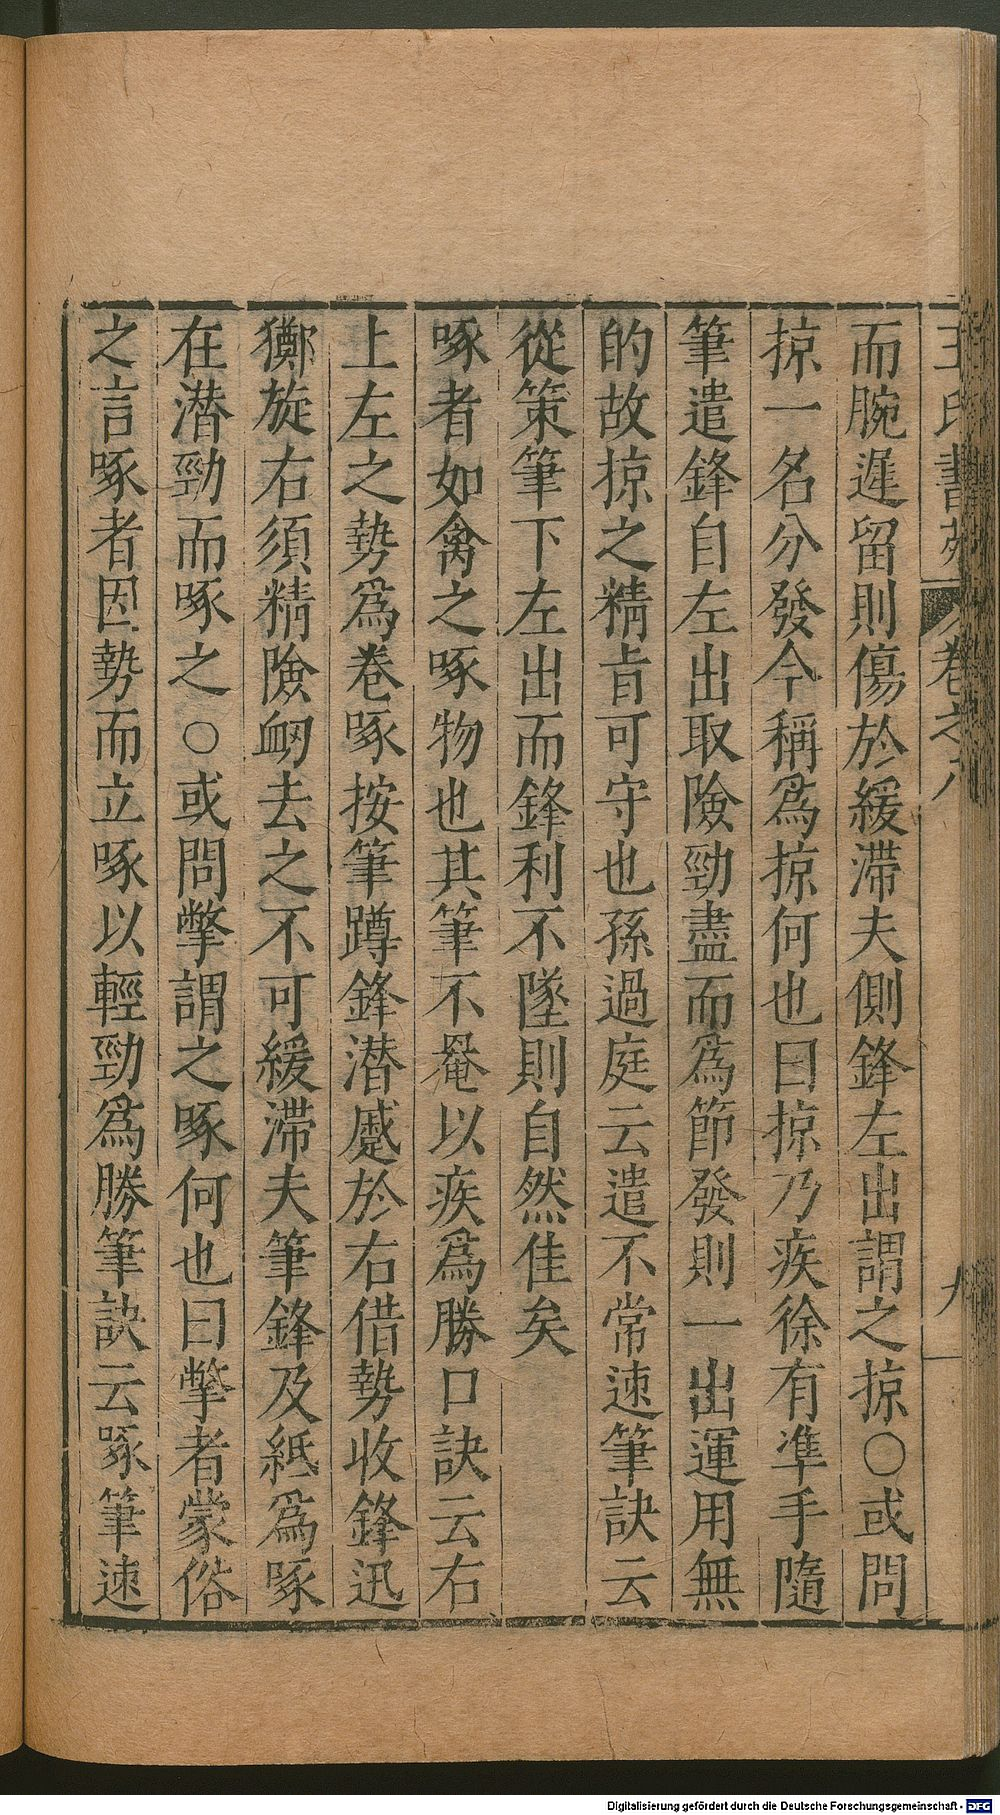 王氏書苑 卷之八 九
而腕遲留則傷於緩滯夫側鋒左出謂之掠○或問
掠一名分發今稱爲掠何也曰掠乃疾徐有準手隨
筆遣鋒自左出取險勁盡而爲節發則一出運用無
的故掠之精旨可守也孫過庭云遣不常速筆訣云
從策筆下左出而鋒利不墜則自然佳矣
啄者如禽之啄物也其筆不罨以疾爲勝口訣云右
上左之勢爲卷啄按筆蹲鋒潜蹙於右借勢收鋒迅
擲旋右須精險衂去之不可緩滯夫筆鋒及紙爲啄
在潜勁而啄之○或問撆謂之啄何也曰撆者蒙俗
之言啄者因勢而立啄以輕勁爲勝筆訣云啄筆速
Digitalisierung gefördert durch die Deutsche Forschungsgemeinschaft - DFG